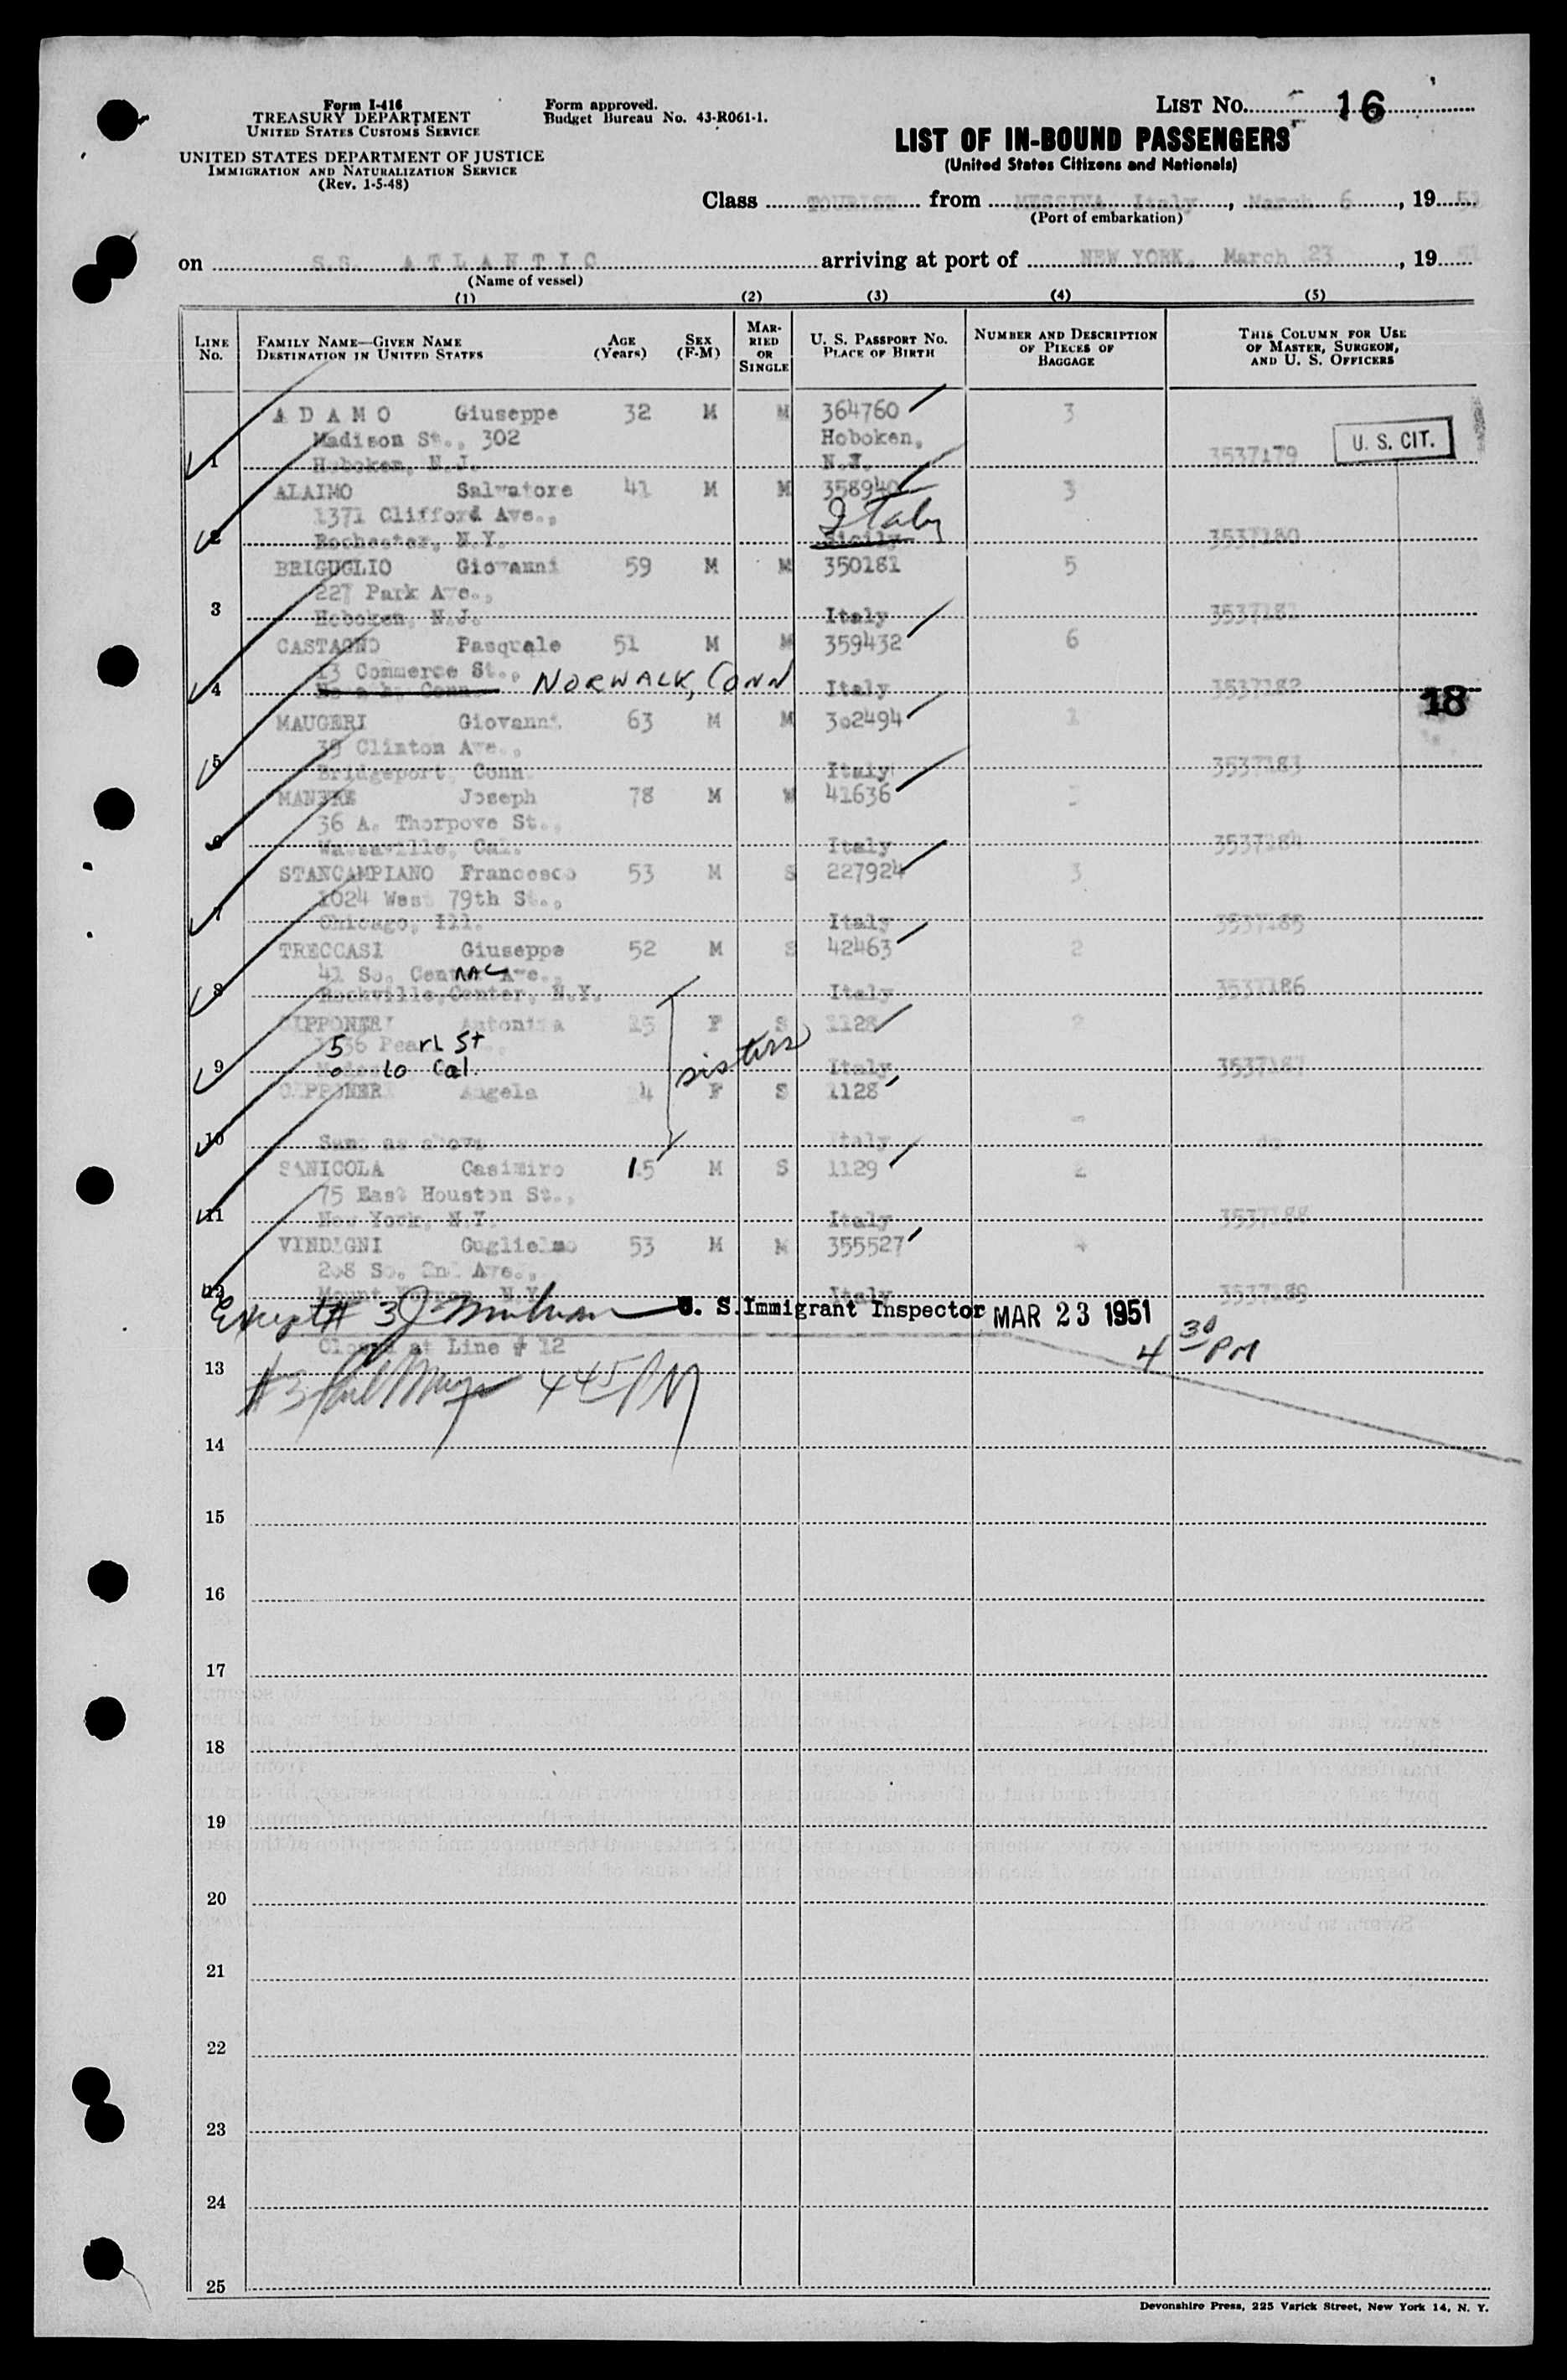 Form I-416
TREASURY DEPARTMENT
UNITED STATES CUSTOMS SERVICE
UNITED STATES DEPARTMENT OF JUSTICE
IMMIGRATION AND NATURALIZATION SERVICE
(Rev. 1-5-48)
Form approved.
Budget Bureau No. 43-R061-1.
LIST NO. 16
LIST OF IN-BOUND PASSENGERS
(United States Citizens and Nationals)
Class TOURIST from MESSINA, Italy, March 6, 19
(Port of embarkation)
on S.S. ATLANTIC arriving at port of NEW YORK, March 23, 19
(Name of vessel)
(1) (2) (3) (4) (5)
LINE NO. FAMILY NAME—GIVEN NAME DESTINATION IN UNITED STATES AGE (Years) SEX (F-M) MARRIED OR SINGLE U. S. PASSPORT NO. PLACE OF BIRTH NUMBER AND DESCRIPTION OF PIECES OF BAGGAGE THIS COLUMN FOR USE OF MASTER, SURGEON, AND U. S. OFFICERS
ADAMO Giuseppe 32 M M 364760 3
Madison St., 302 Hoboken,
1 Hoboken, N.J. N.J. 3537179 U. S. CIT.
ALAIMO Salvatore 41 M M 358940 3
1371 Clifford Ave., Italy
2 Rochester, N.Y. Sicily 3537180
BRIGUGLIO Giovanni 59 M M 350181 5
227 Park Ave.,
3 Hoboken, N.J. Italy 3537181
CASTAGNO Pasquale 51 M M 359432 6
13 Commerce St.,
4 NORWALK, CONN Italy 3537182 18
MAUGERI Giovanni 63 M M 302494 1
39 Clinton Ave.,
5 Bridgeport, Conn. Italy 3537183
Joseph 78 M W 41636 3
36 A. Thorpove St.,
6 Cal. Italy 3537184
STANCAMPIANO Francesco 53 M S 227924 3
1024 West 79th St.,
7 Chicago, Ill. Italy 3537185
TRECCASI Giuseppe 52 M S 42463 2
41 So. Ave.,
8 Rockville, Center, N.Y. Italy 3537186
Antonina 15 F S 1128 2
Pearl St
9 Cal. Italy 3537187
sisters
Angela 4 F S 1128
10 Same as above Italy do
SANICOLA Casimiro 15 M S 1129 2
75 East Houston St.,
11 New York, N.Y. Italy 3537188
VINDIGNI Guglielmo 53 M M 355527 4
208 So. 2nd Ave.,
12 Mount Vernon, N.Y. Italy 3537189
Except # 3 U. S. Immigrant Inspector MAR 23 1951
Closed at Line # 12 4 30 PM
13
# 3 4 45 PM
14
15
16
17
18
19
20
21
22
23
24
25
Devonshire Press, 225 Varick Street, New York 14, N. Y.